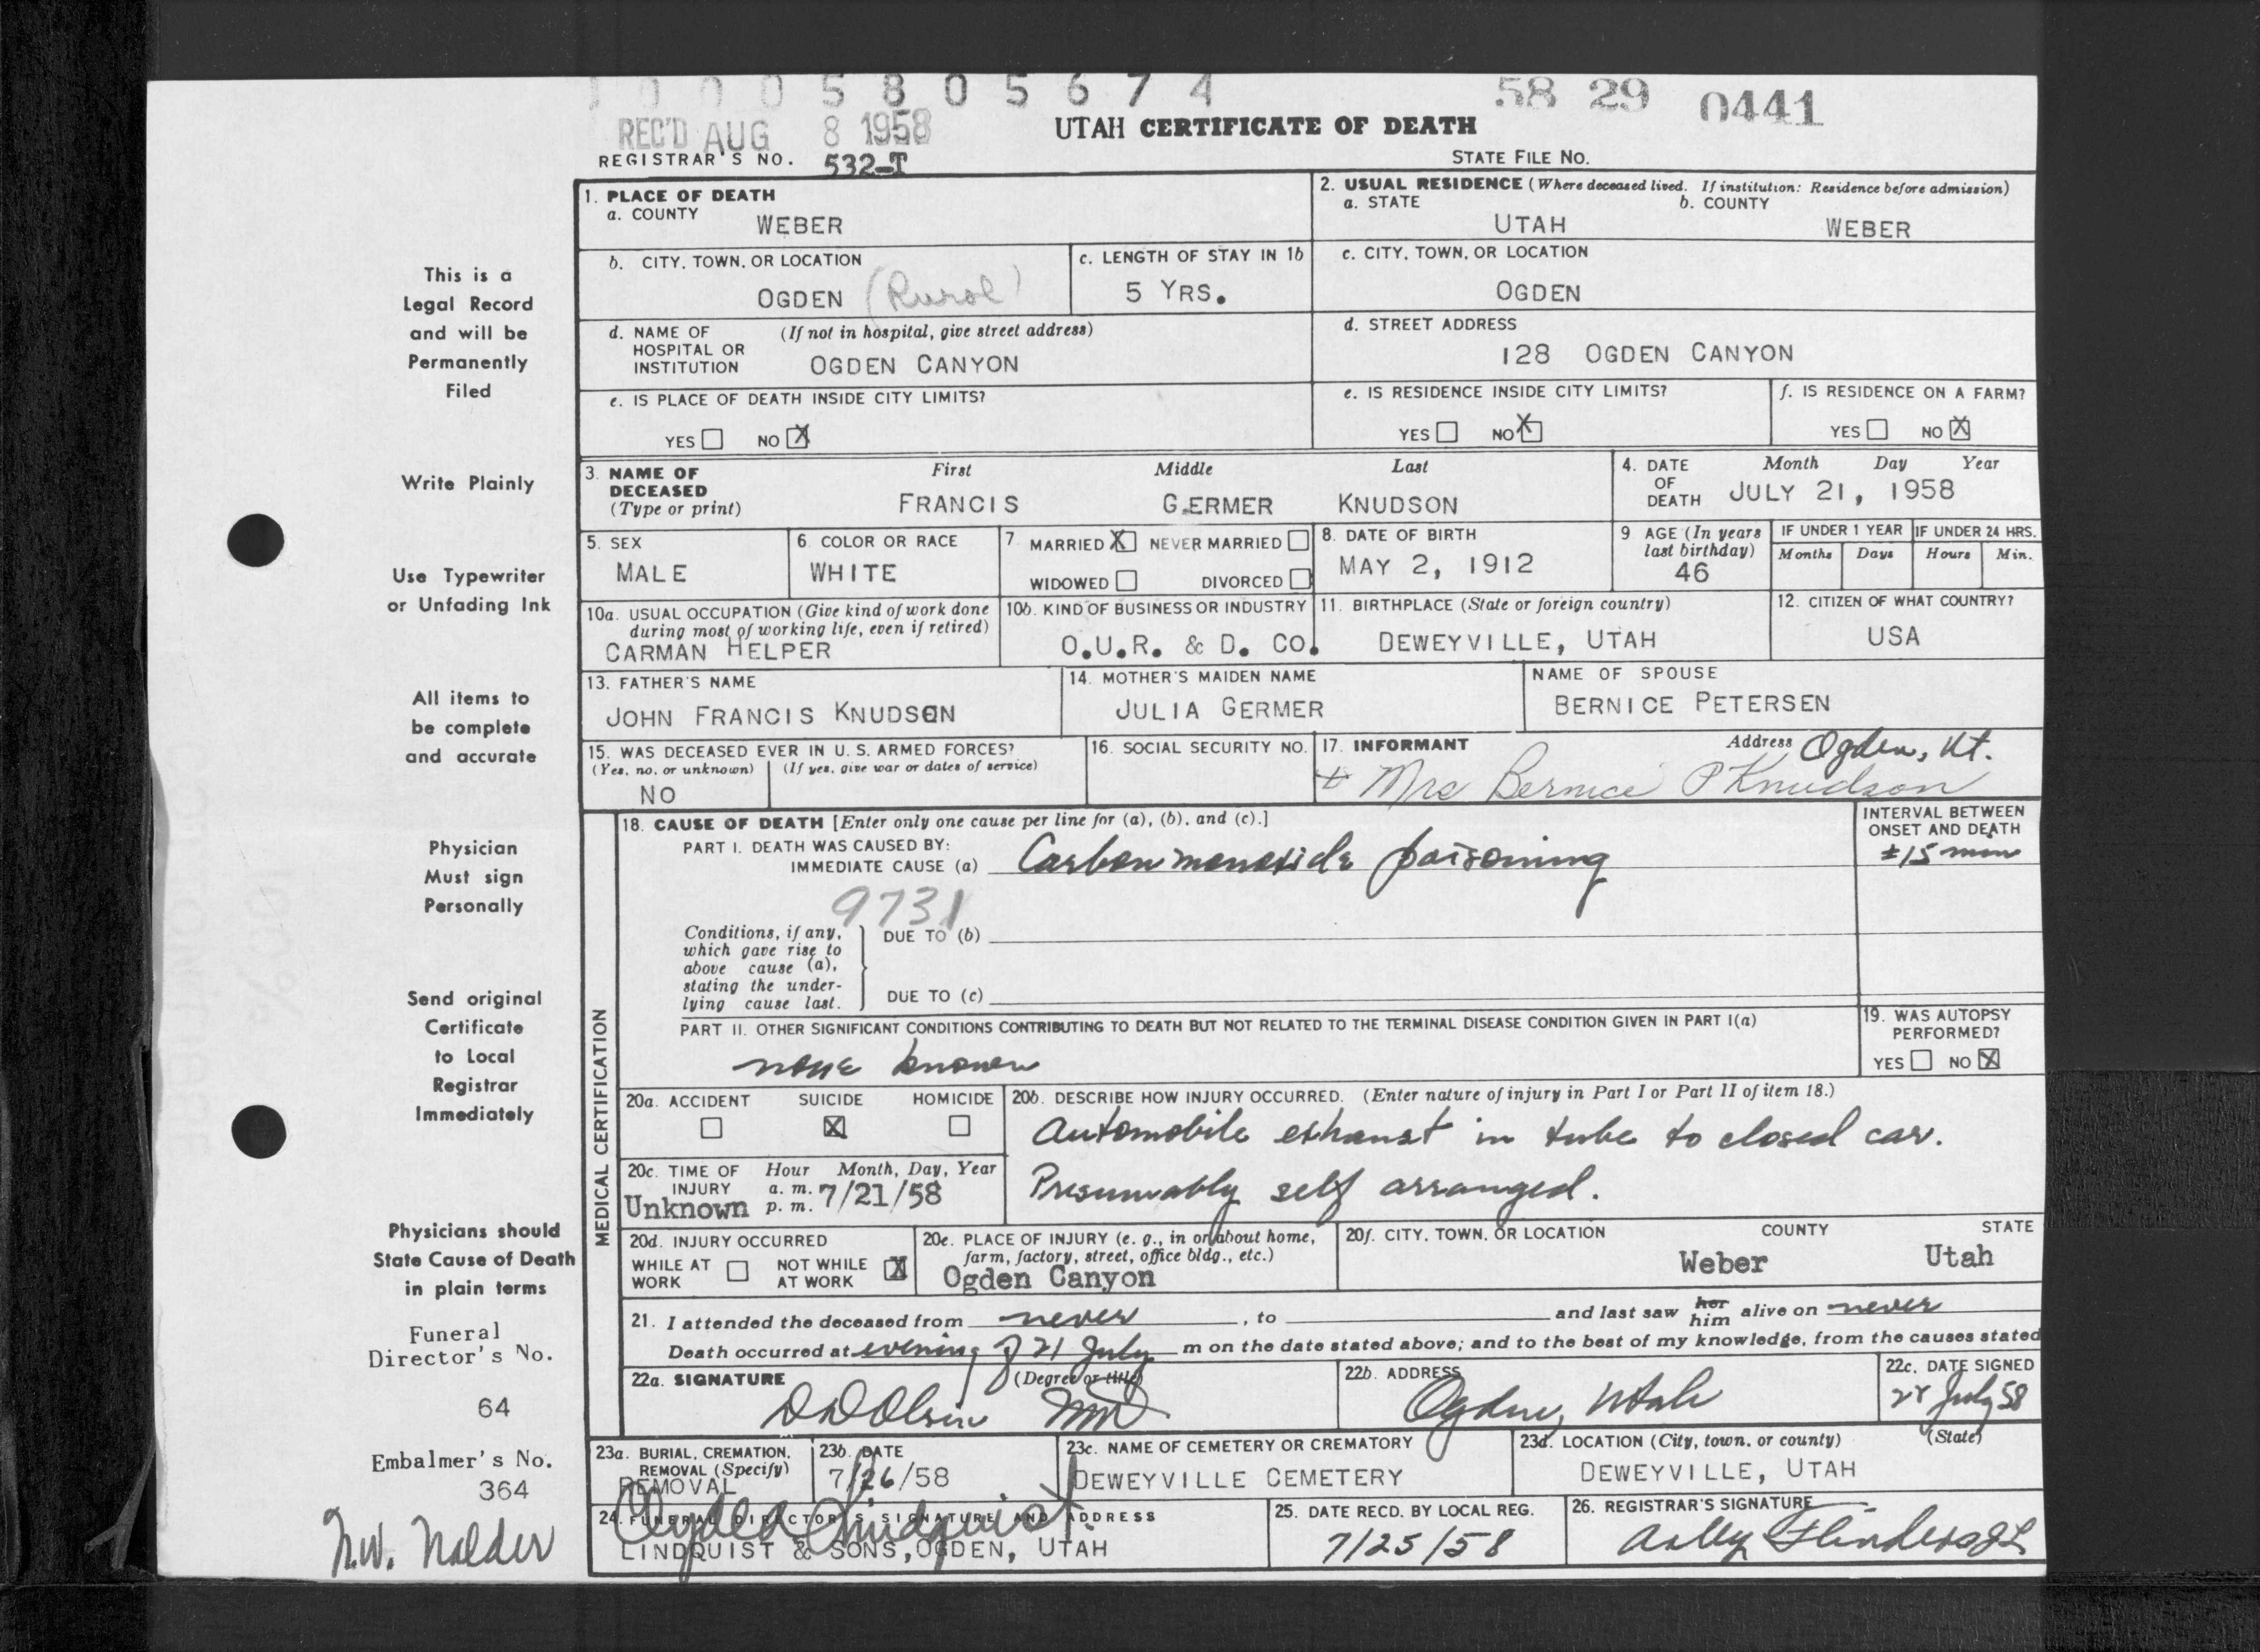 1 0 0 0 5 8 0 5 6 7 4
58 29 0441
REC'D AUG 8 1958
UTAH CERTIFICATE OF DEATH
REGISTRAR'S NO. 532-T
STATE FILE NO.
1. PLACE OF DEATH
a. COUNTY
WEBER
2. USUAL RESIDENCE (Where deceased lived. If institution: Residence before admission)
a. STATE b. COUNTY
UTAH WEBER
b. CITY, TOWN, OR LOCATION
OGDEN (Rural)
c. LENGTH OF STAY IN 1b
5 YRS.
c. CITY, TOWN, OR LOCATION
OGDEN
d. NAME OF HOSPITAL OR INSTITUTION (If not in hospital, give street address)
OGDEN CANYON
d. STREET ADDRESS
128 OGDEN CANYON
e. IS PLACE OF DEATH INSIDE CITY LIMITS?
YES NO X
e. IS RESIDENCE INSIDE CITY LIMITS?
YES NO X
f. IS RESIDENCE ON A FARM?
YES NO X
3. NAME OF DECEASED (Type or print)
First Middle Last
FRANCIS GERMER KNUDSON
4. DATE OF DEATH
Month Day Year
JULY 21, 1958
5. SEX
MALE
6. COLOR OR RACE
WHITE
7. MARRIED X NEVER MARRIED
WIDOWED DIVORCED
8. DATE OF BIRTH
MAY 2, 1912
9 AGE (In years last birthday)
46
IF UNDER 1 YEAR IF UNDER 24 HRS.
Months Days Hours Min.
10a. USUAL OCCUPATION (Give kind of work done during most of working life, even if retired)
CARMAN HELPER
10b. KIND OF BUSINESS OR INDUSTRY
O.U.R. & D. CO.
11. BIRTHPLACE (State or foreign country)
DEWEYVILLE, UTAH
12. CITIZEN OF WHAT COUNTRY?
USA
13. FATHER'S NAME
JOHN FRANCIS KNUDSON
14. MOTHER'S MAIDEN NAME
JULIA GERMER
NAME OF SPOUSE
BERNICE PETERSEN
15. WAS DECEASED EVER IN U. S. ARMED FORCES?
(Yes, no, or unknown) (If yes, give war or dates of service)
NO
16. SOCIAL SECURITY NO.
17. INFORMANT Address Ogden, Ut.
Mrs Bernice P Knudson
MEDICAL CERTIFICATION
18. CAUSE OF DEATH [Enter only one cause per line for (a), (b), and (c).]
PART I. DEATH WAS CAUSED BY:
IMMEDIATE CAUSE (a) Carbon monoxide poisoning
INTERVAL BETWEEN ONSET AND DEATH
±15 min
9731
Conditions, if any, which gave rise to above cause (a), stating the underlying cause last.
DUE TO (b)
DUE TO (c)
PART II. OTHER SIGNIFICANT CONDITIONS CONTRIBUTING TO DEATH BUT NOT RELATED TO THE TERMINAL DISEASE CONDITION GIVEN IN PART I(a)
none known
19. WAS AUTOPSY PERFORMED?
YES NO X
20a. ACCIDENT SUICIDE X HOMICIDE
20b. DESCRIBE HOW INJURY OCCURRED. (Enter nature of injury in Part I or Part II of item 18.)
Automobile exhaust in tube to closed car.
Presumably self arranged.
20c. TIME OF INJURY Hour Month, Day, Year
a. m. p. m.
Unknown 7/21/58
20d. INJURY OCCURRED
WHILE AT WORK NOT WHILE AT WORK X
20e. PLACE OF INJURY (e. g., in or about home, farm, factory, street, office bldg., etc.)
Ogden Canyon
20f. CITY, TOWN, OR LOCATION COUNTY STATE
Weber Utah
21. I attended the deceased from never, to and last saw her him alive on never
Death occurred at evening of 21 July m on the date stated above; and to the best of my knowledge, from the causes stated
22a. SIGNATURE (Degree or title)
D D Olsen MD
22b. ADDRESS
Ogden, Utah
22c. DATE SIGNED
July 58
23a. BURIAL, CREMATION, REMOVAL (Specify)
REMOVAL
23b. DATE
7/26/58
23c. NAME OF CEMETERY OR CREMATORY
DEWEYVILLE CEMETERY
23d. LOCATION (City, town, or county) (State)
DEWEYVILLE, UTAH
24. FUNERAL DIRECTOR'S SIGNATURE AND ADDRESS
Lindquist
LINDQUIST & SONS, OGDEN, UTAH
25. DATE RECD. BY LOCAL REG.
7/25/58
26. REGISTRAR'S SIGNATURE
This is a
Legal Record
and will be
Permanently
Filed
Write Plainly
Use Typewriter
or Unfading Ink
All items to
be complete
and accurate
Physician
Must sign
Personally
Send original
Certificate
to Local
Registrar
Immediately
Physicians should
State Cause of Death
in plain terms
Funeral
Director's No.
64
Embalmer's No.
364
N.W. Nalder